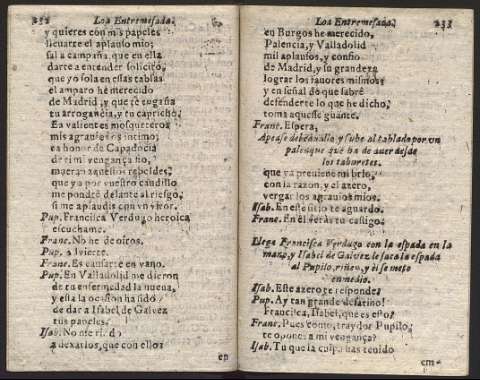 232 Loa Entremesada.
y quieres con mis papeles
lleuarte el aplauso mio;
sal a campaña, que en ella
darte a entender solicito,
que yo sola en estas tablas
el amparo he merecido
de Madrid, y que se engaña
tu arrogancia, y tu capricho.
Ea valientes mosqueteros
mis agrauios os intimo;
en honor de Capadocia
de mi vengança fio,
mueran aquestos rebeldes,
que yo por vuestro caudillo
me pondrè delante al riesgo,
si me aplaudis con vn vitor.
Pup. Francisca Verdugo heroica
escuchame.
Franc. No he de oiros.
Pup. Aduierte.
Franc. Es cansarte en vano.
Pup. En Valladolid me dieron
de tu enfermedad la nueua,
y esta la ocasion ha sido
de dar a Isabel de Galvez
tus papeles.
Isab. No me rindo
a dexarlos, que con ellos
en
Loa Entremesada. 233
en Burgos he merecido,
Palencia, y Valladolid
mil aplausos, y confio
de Madrid, y su grandeza
lograr los fauores mismos;
y en señal de que sabrè
defenderte lo que he dicho,
toma aquesse guante.
Franc. Espera,
Apease de cauallo, y sube al tablado por vn
palenque que ha de auer desde
los taburetes.
que ya preuiene mi brio,
con la razon, y el azero,
vengar los agrauios mios.
Isab. En este sitio te aguardo.
Franc. En èl serà tu castigo.
Llega Francisca Verdugo con la espada en la
mano, y Isabel de Galvez le saca la espada
al Pupilo, riñen, y èl se mete
en medio.
Isab. Este azero te responde.
Pup. Ay tan grande desatino!
Francisca, Isabel, que es esto?
Franc. Pues como, traydor Pupilo,
te opones a mi vengança?
Isab. Tu que la culpa has tenido
em-